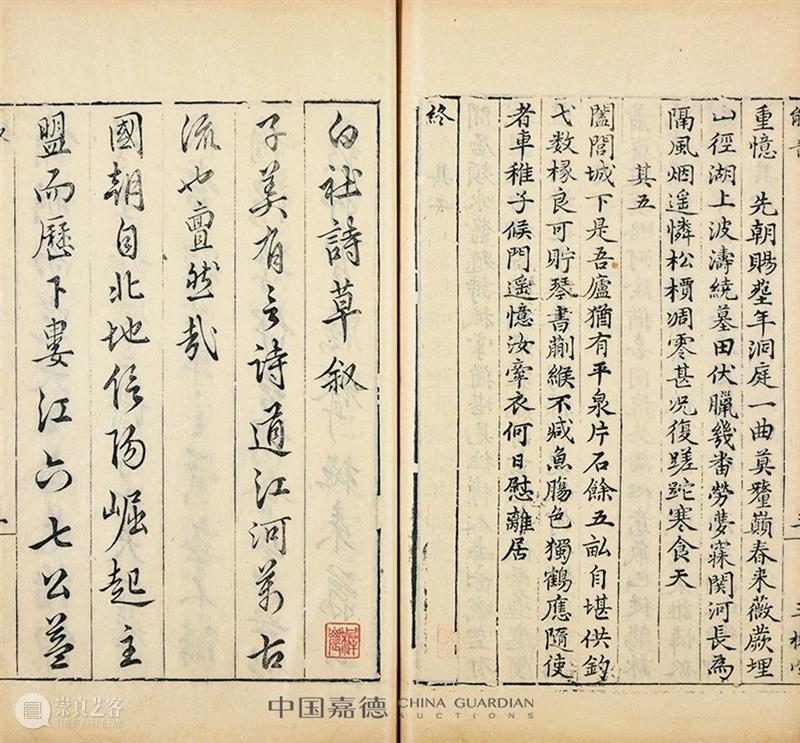 重憶 先朝賜塋年洞庭一曲莫釐巔春来薇蕨埋
山徑湖上波濤繞墓田伏臘幾番勞夢寐関河長為
隔風烟遥憐松檟凋零甚况復蹉跎寒食天
其五
闔閭城下是吾廬猶有平泉片石餘五畆自堪供釣
弋数椽良可貯琴書蒯緱不减魚膓色獨鶴應隨使
者車稚子候門遥憶汝牽衣何日慰離居
終
白社詩草叙
子美有言詩道江河萬古
流也亶然哉
國朝自北地信陽崛起主
盟而歷下婁江六七公益
中国嘉德 CHINA GUARDIAN
AUCTIONS
崇真艺客